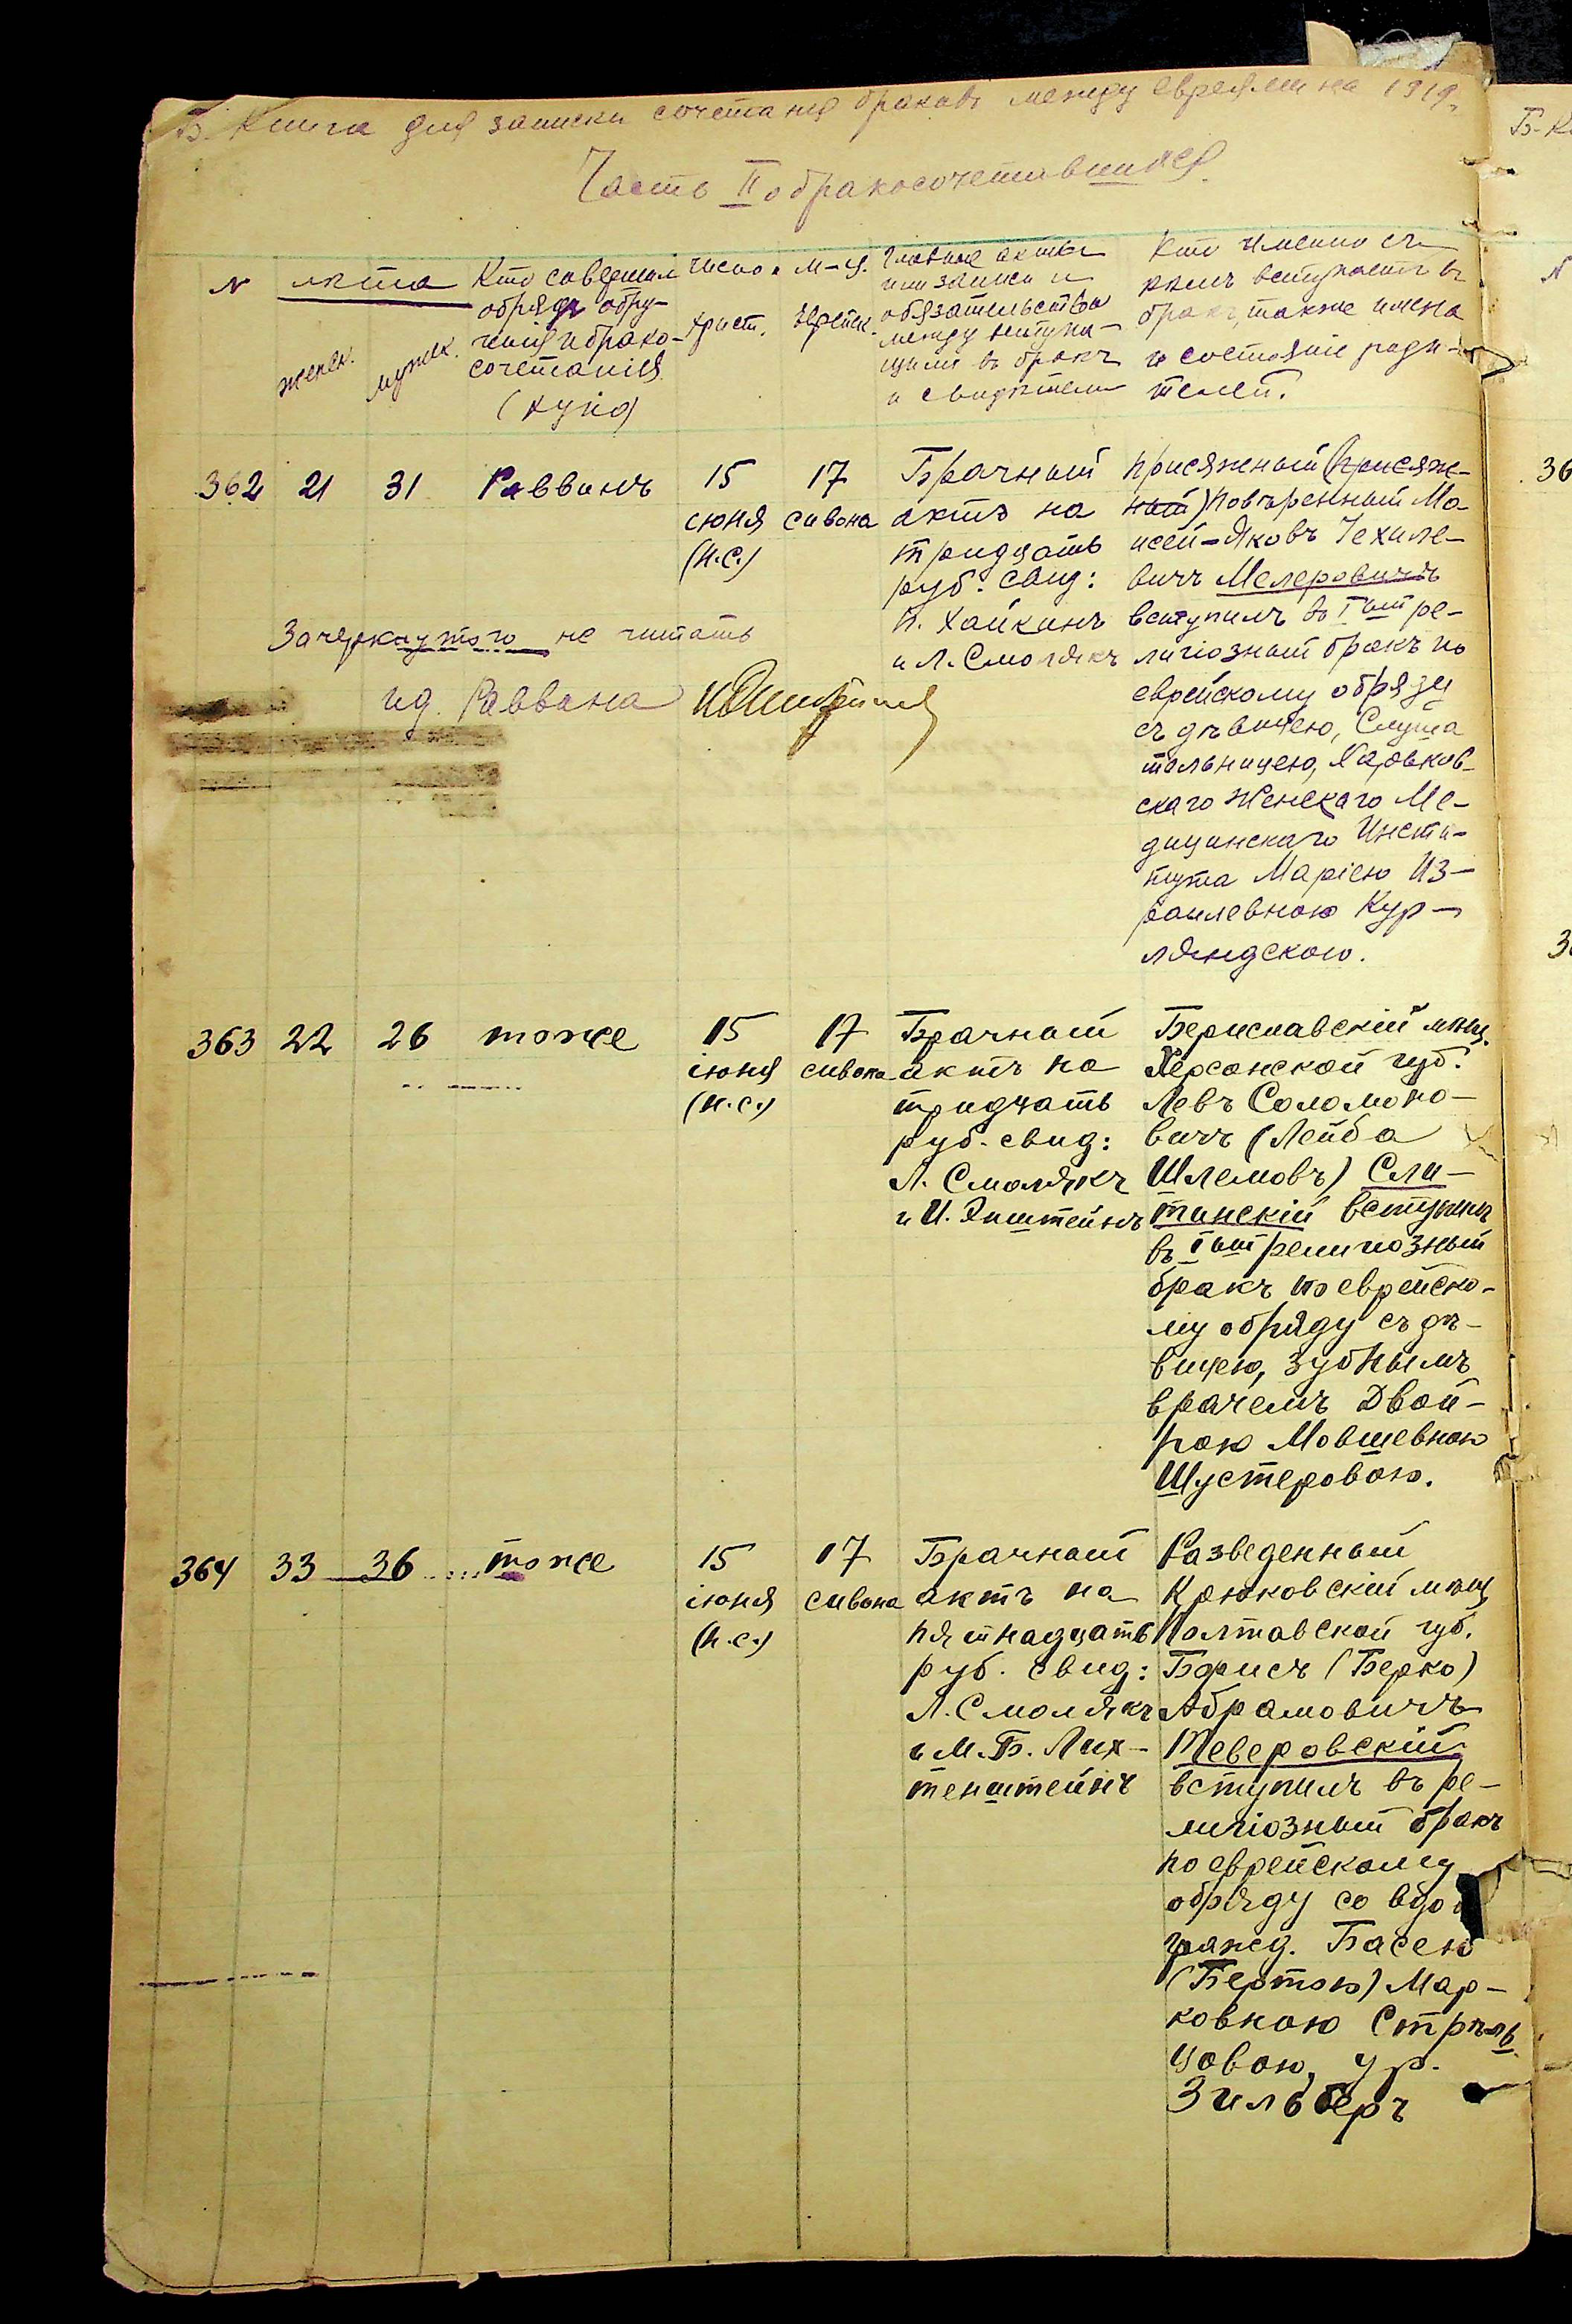 Б. Книга для записки сочетанія браковъ между евреями на 1919 г.
Часть II о бракосочетавшихся.
N
лѣта
женск.
мужск.
Кто совершал
обрядъ обру-
ченія и брако-
сочетанія
(хупа)
Число и м-ц.
христ.
еврейск.
Главные акты
или записи и
обязательства
между вступаю-
щими въ бракъ
и свидѣтели
Кто именно съ
кѣмъ вступаетъ въ
бракъ, также имена
и состояніе роди-
телей.
362
21
31
Раввинъ
15
іюня
(н.с.)
17
сивона
Брачный
актъ на
тридцать
руб. свид:
Хайкинъ
и Л. Смолякъ
Присяжный (присяж-
ный) повѣренный Мо-
исей-Яковъ Чехиле-
вичъ Мелеровичъ
вступилъ въ Iый ре-
лигіозный бракъ по
еврейскому обряду
съ дѣвицею, Слуша
тельницею, Харьков-
скаго Женскаго Ме-
дицинскаго Инсти-
тута Маріею Из-
раилевною Кур-
ляндскою.
Зачеркнутого не читать
и д. Раввина
363
22
26
тоже
15
іюня
(н.с.)
17
сивона
Брачный
актъ на
тридцать
руб. свид:
Л. Смолякъ
и И. Эпштейнъ
Бериславскій мѣщ.
Херсонской губ.
Левъ Соломоно-
вичъ (Лейба
Шлемовъ) Сли-
тинскій вступилъ
въ Iый религіозный
бракъ по еврейско-
му обряду съ дѣ-
вицею, зубнымъ
врачемъ Двой-
рою Мовшевною
Шустеровою.
364
33
36
тоже
15
іюня
(н.с.)
17
сивона
Брачный
актъ на
пятнадцать
руб. свид:
Л. Смолякъ
и М. Б. Лих-
тенштейнъ
Разведенный
Крюковскій мѣщ
Полтавской губ.
Борисъ (Берко)
Абрамовичъ
Теверовскій
вступилъ въ ре-
лигіозный бракъ
по еврейскому
обряду со вдов
гражд. Басею
(Бертою) Мар-
ковною Стрѣль
цовою, ур.
Зильберъ
Б-К
N
36